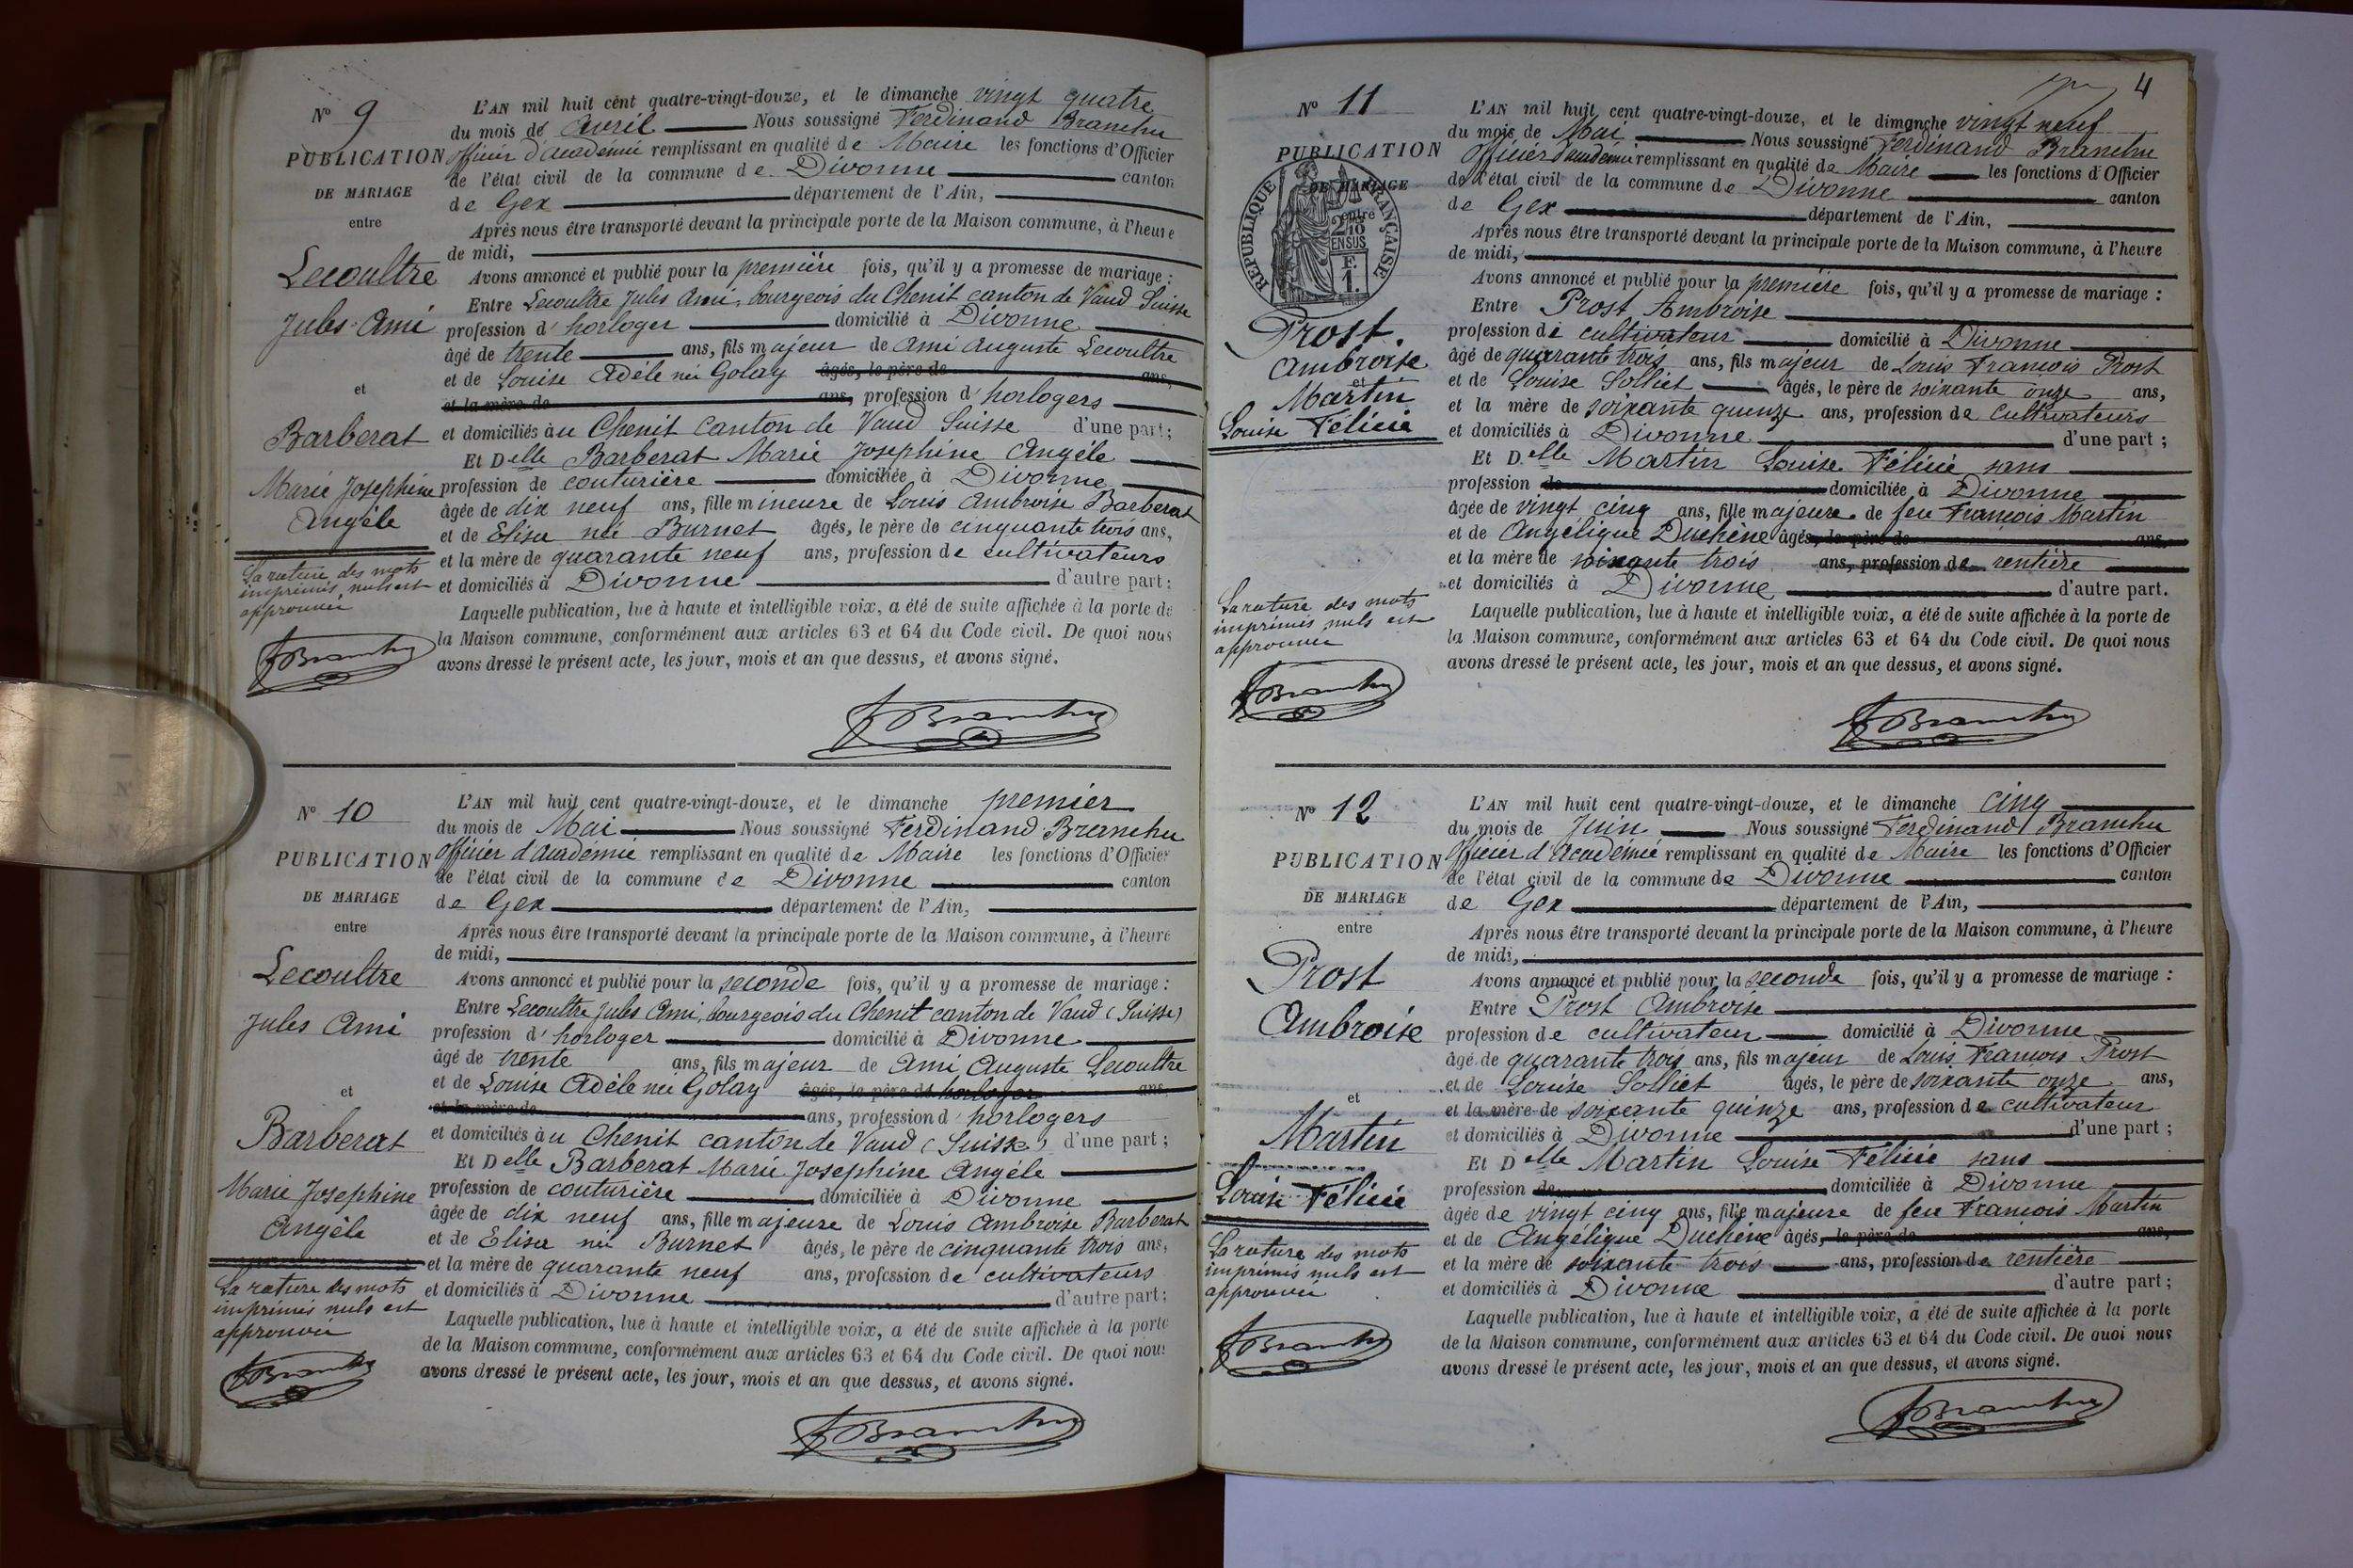 N° 9
PUBLICATION
DE MARIAGE
entre
Lecoultre
Jules Ami
et
Barberat
Marie Josephine
Angèle
La rature des mots
imprimés nuls est
approuvée
FBranchu
L'AN mil huit cent quatre-vingt-douze, et le dimanche vingt quatre
du mois de Avril Nous soussigné Ferdinand Branchu
officier d'académie remplissant en qualité de Maire les fonctions d'Officier
de l'état civil de la commune de Divonne canton
de Gex département de l'Ain,
Après nous être transporté devant la principale porte de la Maison commune, à l'heure
de midi,
Avons annoncé et publié pour la première fois, qu'il y a promesse de mariage :
Entre Lecoultre Jules Ami, bourgeois du Chenit canton de Vaud Suisse
profession d'horloger domicilié à Divonne
âgé de trente ans, fils majeur de Ami Auguste Lecoultre
et de Louise Adèle née Golay âgés, le père de ans,
et la mère de ans, profession d'horlogers
et domiciliés au Chenit canton de Vaud Suisse d'une part;
Et Delle Barberat Marie Josephine Angèle
profession de couturière domiciliée à Divonne
âgée de dix neuf ans, fille mineure de Louis Ambroise Barberat
et de Elisa née Burnet âgés, le père de cinquante trois ans,
et la mère de quarante neuf ans, profession de cultivateurs
et domiciliés à Divonne d'autre part;
Laquelle publication, lue à haute et intelligible voix, a été de suite affichée à la porte de
la Maison commune, conformément aux articles 63 et 64 du Code civil. De quoi nous
avons dressé le présent acte, les jour, mois et an que dessus, et avons signé.
FBranchu
N° 10
PUBLICATION
DE MARIAGE
entre
Lecoultre
Jules Ami
et
Barberat
Marie Josephine
Angèle
La rature des mots
imprimés nuls est
approuvée
FBranchu
L'AN mil huit cent quatre-vingt-douze, et le dimanche premier
du mois de Mai Nous soussigné Ferdinand Branchu
officier d'académie remplissant en qualité de Maire les fonctions d'Officier
de l'état civil de la commune de Divonne canton
de Gex département de l'Ain,
Après nous être transporté devant la principale porte de la Maison commune, à l'heure
de midi,
Avons annoncé et publié pour la seconde fois, qu'il y a promesse de mariage :
Entre Lecoultre Jules Ami, bourgeois du Chenit canton de Vaud (Suisse)
profession d'horloger domicilié à Divonne
âgé de trente ans, fils majeur de Ami Auguste Lecoultre
et de Louise Adèle née Golay âgés, le père de horloger ans,
et la mère de ans, profession d'horlogers
et domiciliés au Chenit canton de Vaud (Suisse) d'une part ;
Et Delle Barberat Marie Josephine Angèle
profession de couturière domiciliée à Divonne
âgée de dix neuf ans, fille majeure de Louis Ambroise Barberat
et de Elisa née Burnet âgés, le père de cinquante trois ans,
et la mère de quarante neuf ans, profession de cultivateurs
et domiciliés à Divonne d'autre part;
Laquelle publication, lue à haute et intelligible voix, a été de suite affichée à la porte
de la Maison commune, conformément aux articles 63 et 64 du Code civil. De quoi nous
avons dressé le présent acte, les jour, mois et an que dessus, et avons signé.
FBranchu
4
N° 11
PUBLICATION
DE MARIAGE
entre
REPUBLIQUE FRANÇAISE
2/10
EN SUS
F.
1.
Prost
Ambroise
et
Martin
Louise Félicie
La rature des mots
imprimés nuls est
approuvée
FBranchu
L'AN mil huit cent quatre-vingt-douze, et le dimanche vingt neuf
du mois de Mai Nous soussigné Ferdinand Branchu
officier d'académie remplissant en qualité de Maire les fonctions d'Officier
de l'état civil de la commune de Divonne canton
de Gex département de l'Ain,
Après nous être transporté devant la principale porte de la Maison commune, à l'heure
de midi,
Avons annoncé et publié pour la première fois, qu'il y a promesse de mariage :
Entre Prost Ambroise
profession de cultivateur domicilié à Divonne
âgé de quarante trois ans, fils majeur de Louis François Prost
et de Louise Solliet âgés, le père de soixante onze ans,
et la mère de soixante quinze ans, profession de cultivateurs
et domiciliés à Divonne d'une part ;
Et Delle Martin Louise Félicie sans
profession de domiciliée à Divonne
âgée de vingt cinq ans, fille majeure de feu François Martin
et de Angélique Duchène âgés, le père de ans,
et la mère de soixante trois ans, profession de rentière
et domiciliés à Divonne d'autre part.
Laquelle publication, lue à haute et intelligible voix, a été de suite affichée à la porte de
la Maison commune, conformément aux articles 63 et 64 du Code civil. De quoi nous
avons dressé le présent acte, les jour, mois et an que dessus, et avons signé.
FBranchu
N° 12
PUBLICATION
DE MARIAGE
entre
Prost
Ambroise
et
Martin
Louise Félicie
La rature des mots
imprimés nuls est
approuvée
FBranchu
L'AN mil huit cent quatre-vingt-douze, et le dimanche cinq
du mois de Juin Nous soussigné Ferdinand Branchu
officier d'Académie remplissant en qualité de Maire les fonctions d'Officier
de l'état civil de la commune de Divonne canton
de Gex département de l'Ain,
Après nous être transporté devant la principale porte de la Maison commune, à l'heure
de midi,
Avons annoncé et publié pour la seconde fois, qu'il y a promesse de mariage :
Entre Prost Ambroise
profession de cultivateur domicilié à Divonne
âgé de quarante trois ans, fils majeur de Louis François Prost
et de Louise Solliet âgés, le père de soixante onze ans,
et la mère de soixante quinze ans, profession de cultivateur
et domiciliés à Divonne d'une part ;
Et Delle Martin Louise Félicie sans
profession de domiciliée à Divonne
âgée de vingt cinq ans, fille majeure de feu François Martin
et de Angélique Duchène âgés, le père de ans,
et la mère de soixante trois ans, profession de rentière
et domiciliés à Divonne d'autre part ;
Laquelle publication, lue à haute et intelligible voix, a été de suite affichée à la porte
de la Maison commune, conformément aux articles 63 et 64 du Code civil. De quoi nous
avons dressé le présent acte, les jour, mois et an que dessus, et avons signé.
FBranchu